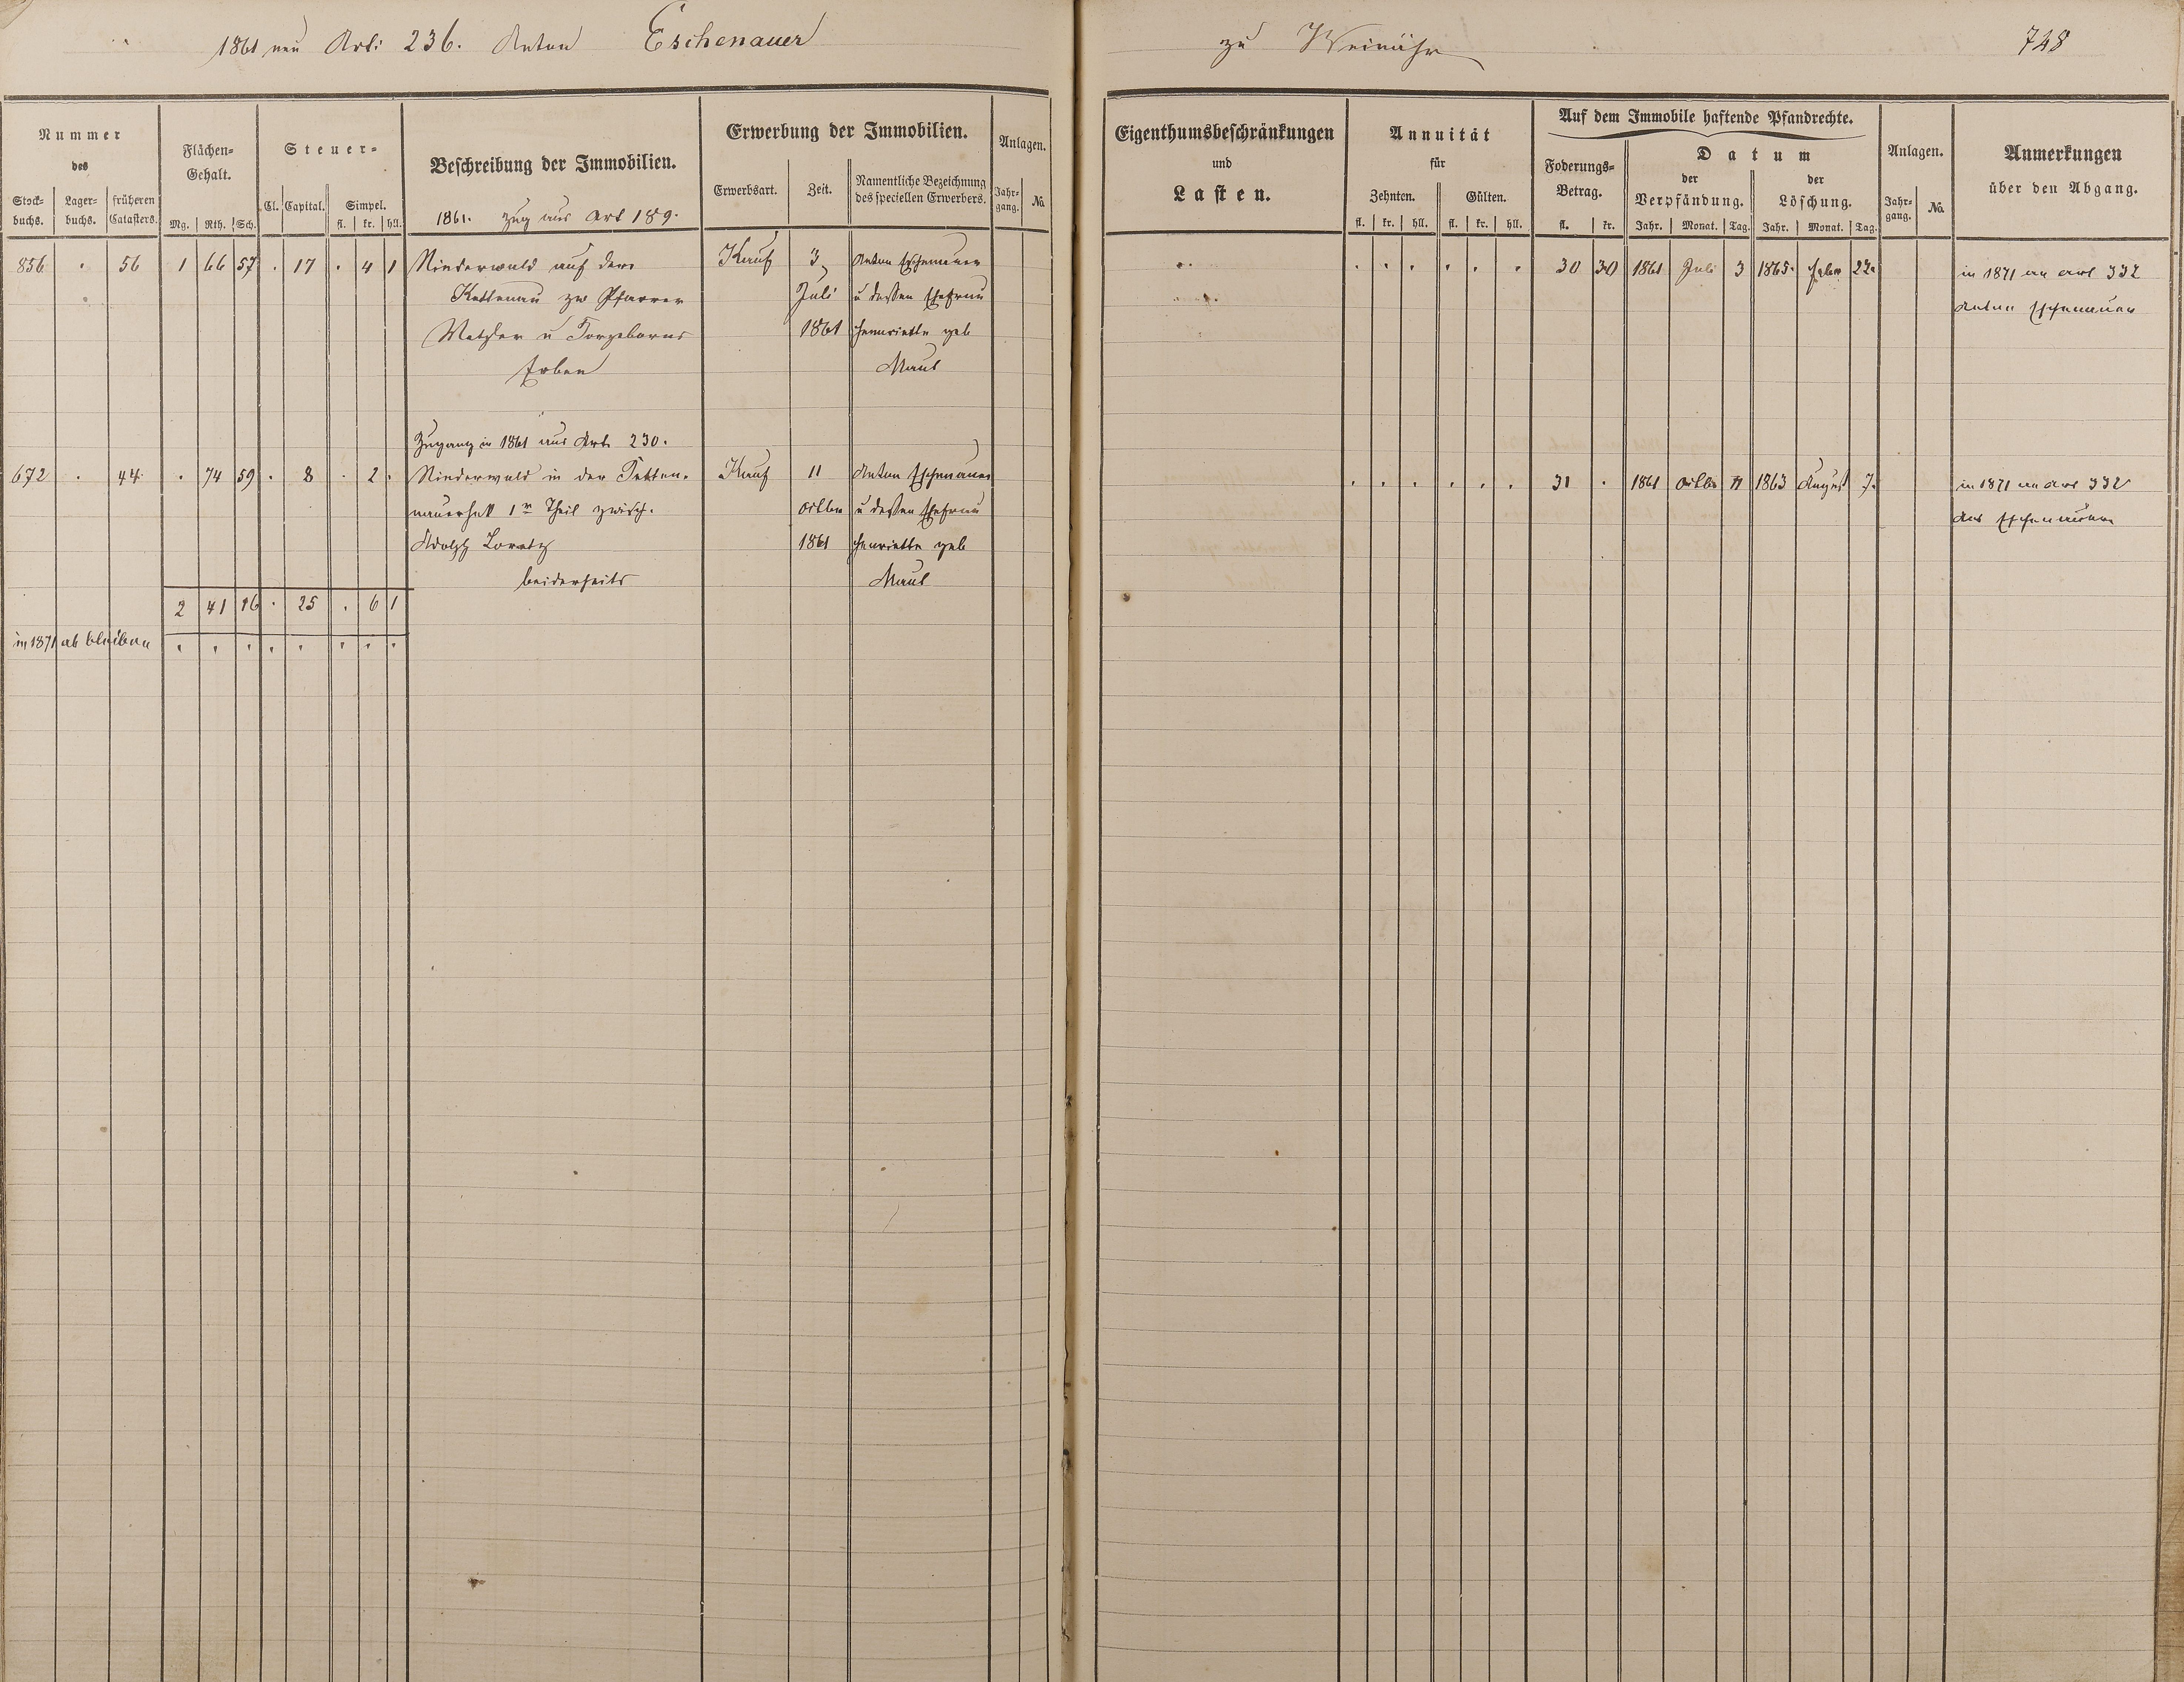 1861 neu Art: 236. Anton Eschenauer
zu Weinähr
748
Nummer
des
Stock-buchs. Lager-buchs. früheren Catasters.
Flächen-Gehalt.
Mg. Rth. Sch.
Steuer-
Cl. Capital. Simpel.
fl. kr. hll.
Beschreibung der Immobilien.
1861. Zug aus Art 189.
Erwerbung der Immobilien.
Erwerbsart. Zeit. Namentliche Bezeichnung des speciellen Erwerbers.
Anlagen.
Jahr-gang. No.
Eigenthumsbeschränkungen
und
Lasten.
Annuität
für
Zehnten. Gülten.
fl. kr. hll. fl. kr. hll.
Auf dem Immobile haftende Pfandrechte.
Foderungs-Betrag.
fl. kr.
Datum
der Verpfändung. der Löschung.
Jahr. Monat. Tag. Jahr. Monat. Tag.
Anlagen.
Jahr-gang. No.
Anmerkungen
über den Abgang.
856 . 56 1 66 57 . 17 . 4 1 Niederwald auf der Kauf 3 Anton Eschenauer . . . . . . 30 30 1861 Juli 3 1865. Febr 22. in 1871 an Art 332
Kettenau zw Pfarrer Juli u dessen Ehefrau Anton Eschenauer
Metzler u 1861 Henriette geb
Erben Maul
Zugang in 1861 aus Art. 230.
672 . 44 . 74 59 . 8 . 2 . Niederwald in der Kauf 11 Anton Eschenauer . . . . . . 31 . 1861 Octbr 11 1863 August 7. in 1871 an Art 332
1r Theil zwisch. Octbr u dessen Ehefrau Eschenauer
Adolph Loratz 1861 Henriette geb
beiderseits Maul
2 41 16 . 25 . 6 1
in 1871 ab bleiben " " " " " " " "